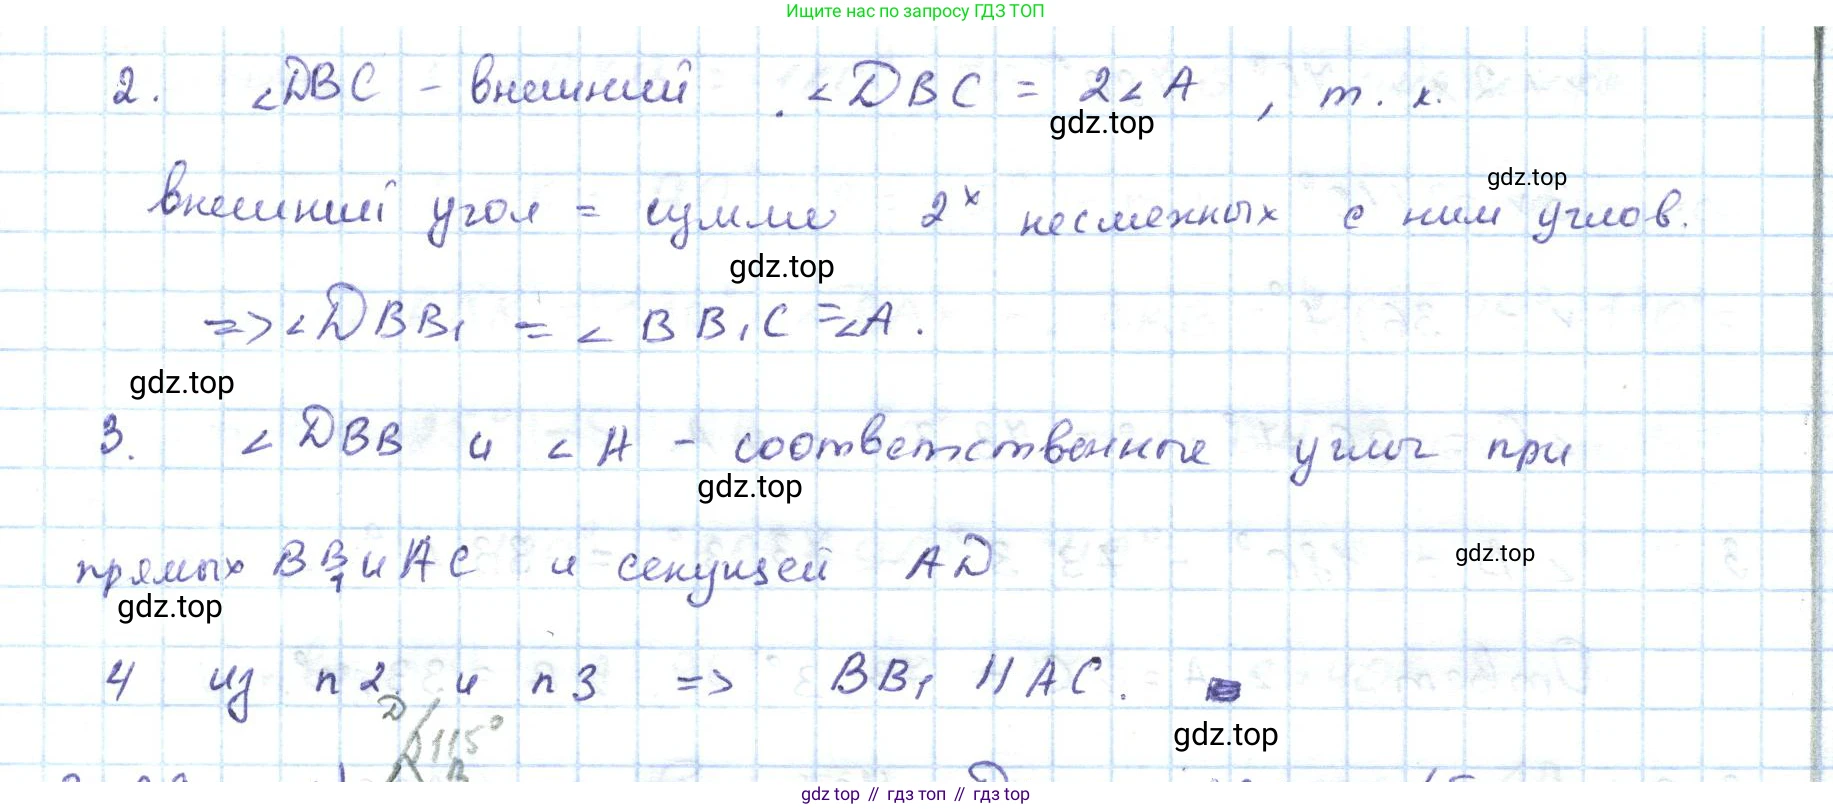 Ищите нас по запросу ГДЗ ТОП
2. ∠DBC - внешний . ∠DBC = 2∠A , т. к.
gdz.top
gdz.top
внешний угол = сумме 2х несмежных с ним углов.
gdz.top
=> ∠DBB₁ = ∠BB₁C = ∠A.
gdz.top
3. ∠DBB и ∠A - соответственные углы при
gdz.top
прямых BB₁ и AC и секущей AD
gdz.top
gdz.top
4 из п2. и п3 => BB₁ || AC.
D 115°
gdz.top
B
gdz top // гдз топ // гдз top